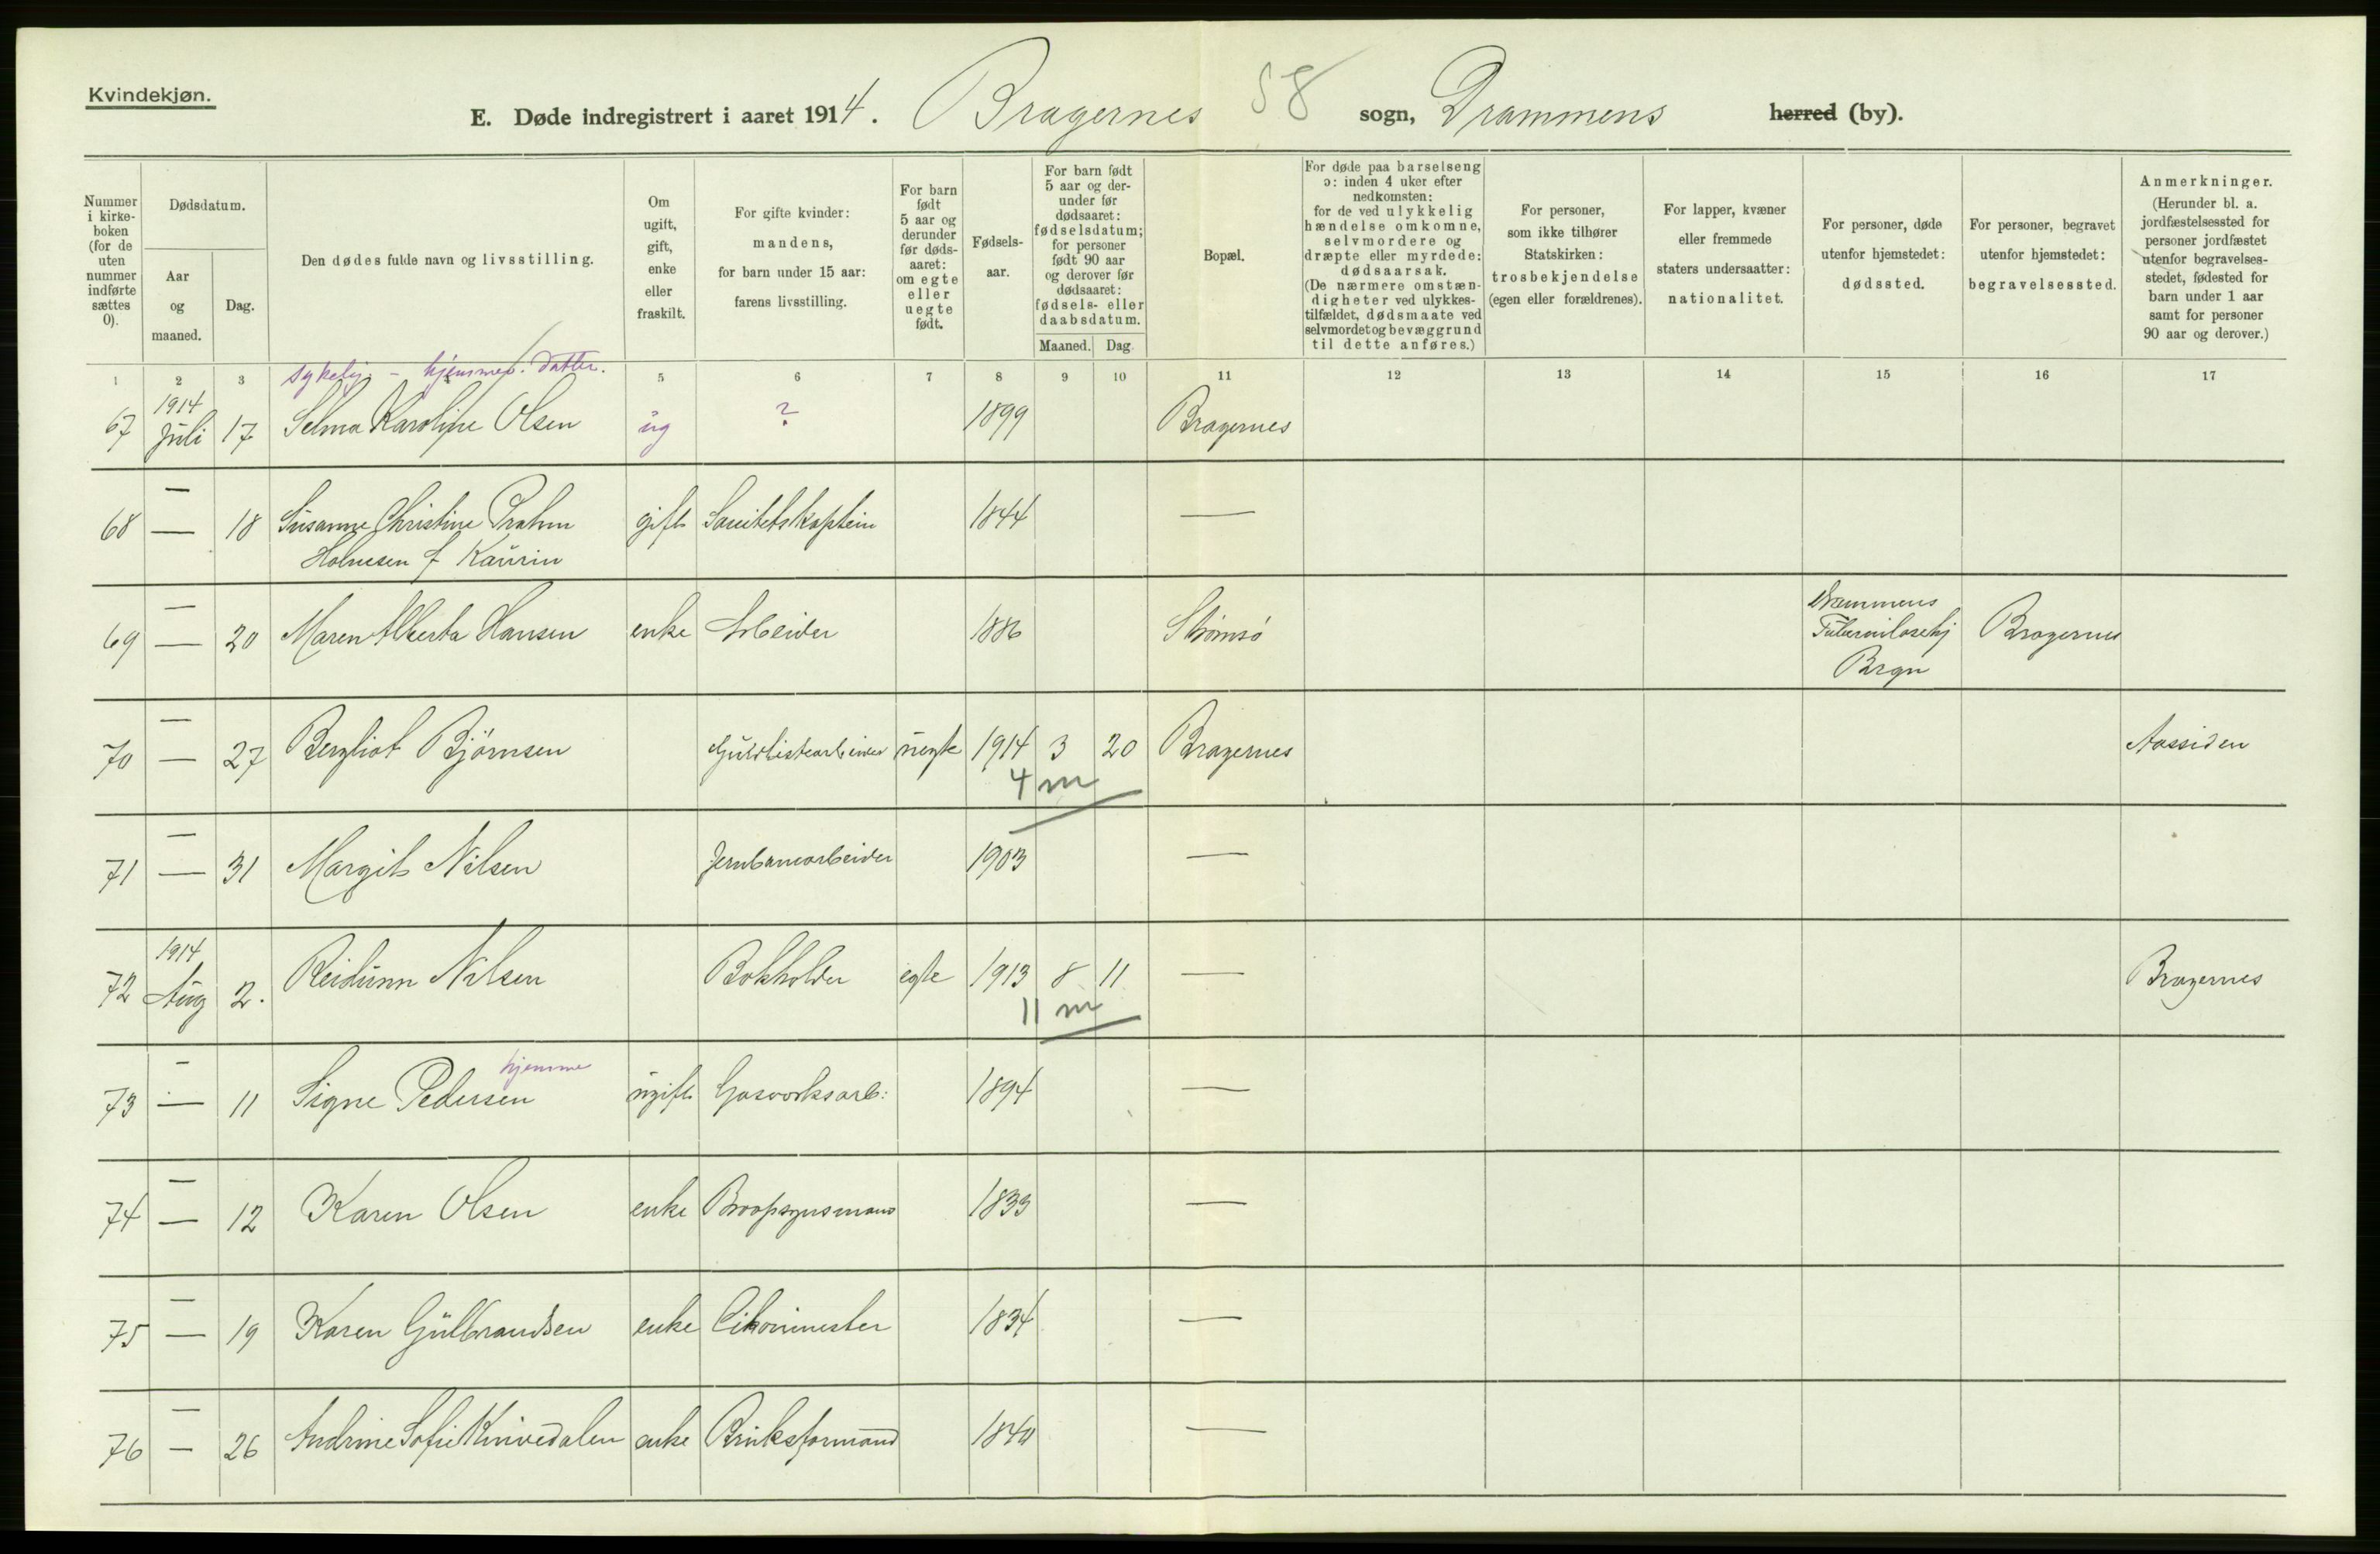 Kvindekjøn.
E. Døde indregistrert i aaret 1914. Bragernes 58 sogn, Drammens herred (by).
Nummer i kirke-boken (for de uten nummer indførte sættes 0).
Dødsdatum.
Aar og maaned.
Dag.
Den dødes fulde navn og livsstilling.
Om ugift, gift, enke eller fraskilt.
For gifte kvinder: mandens, for barn under 15 aar: farens livsstilling.
For barn født 5 aar og derunder før døds-aaret: om egte eller uegte født.
Fødsels-aar.
For barn født 5 aar og der-under før dødsaaret: fødselsdatum; for personer født 90 aar og derover før dødsaaret: fødsels- eller daabsdatum.
Maaned. Dag.
Bopæl.
For døde paa barselseng ɔ: inden 4 uker efter nedkomsten: for de ved ulykkelig hændelse omkomne, selvmordere og dræpte eller myrdede: dødsaarsak. (De nærmere omstæn-digheter ved ulykkes-tilfældet, dødsmaate ved selvmordet og bevæggrund til dette anføres.)
For personer, som ikke tilhører Statskirken: trosbekjendelse (egen eller forældrenes).
For lapper, kvæner eller fremmede staters undersaatter: nationalitet.
For personer, døde utenfor hjemstedet: dødssted.
For personer, begravet utenfor hjemstedet: begravelsessted.
Anmerkninger. (Herunder bl. a. jordfæstelsessted for personer jordfæstet utenfor begravelses-stedet, fødested for barn under 1 aar samt for personer 90 aar og derover.)
1 2 3 5 6 7 8 9 10 11 12 13 14 15 16 17
sykelig - hjemmev. datter.
67 1914 Juli 17 Selma Karoline Olsen ug ? 1899 Bragernes
68 — — 18 Susanne Christine Prahm gift Sanitetskaptein 1844 —
Holmsen f Kaurin
69 — — 20 Maren Alberta Hansen enke Arbeider 1886 Strømsø Drammens Tuberkilosehj Brgn Bragernes
70 — — 27 Bergliot Bjørnsen Guldlistearbeider uegte 1914 3 20 Bragernes Aassiden
4 m
71 — — 31 Margit Nilsen Jernbanearbeider 1903 —
72 1914 Aug 2. Reidunn Nilsen Bokholder egte 1913 8 11 — Bragernes
11 m
hjemme
73 — — 11 Signe Pedersen ugift Gasverksarb: 1894 —
74 — — 12 Karen Olsen enke Broopsynsmand 1833 —
75 — — 19 Karen Gulbrandsen enke 1834 —
76 — — 26 Andrine Sofie enke Bruksformand 1840 —